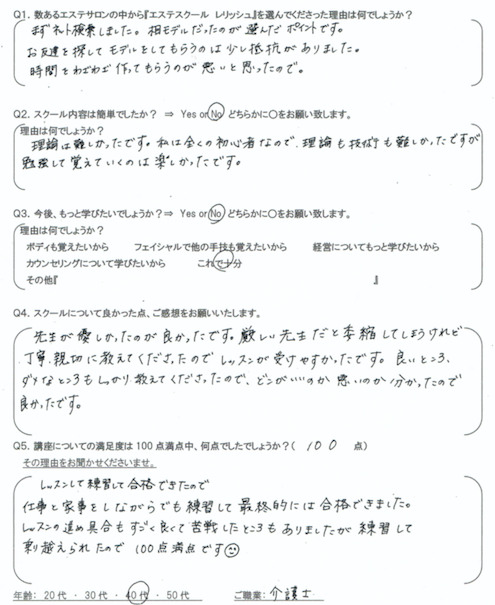 Q1. 数あるエステサロンの中から『エステスクール レリッシュ』を選んでくださった理由は何でしょうか？
まずネット検索しました。相モデルだったのが選んだポイントです。
お友達を探してモデルをしてもらうのは少し抵抗がありました。
時間をわざわざ作ってもらうのが悪いと思ったので。
Q2. スクール内容は簡単でしたか？ ⇒ Yes or No どちらかに○をお願い致します。
理由は何でしょうか？
理論は難しかったです。私は全くの初心者なので、理論も技術も難しかったですが
勉強して覚えていくのは楽しかったです。
Q3. 今後、もっと学びたいでしょうか？⇒ Yes or No どちらかに○をお願い致します。
理由は何でしょうか？
ボディも覚えたいから フェイシャルで他の手技も覚えたいから 経営についてもっと学びたいから
カウンセリングについて学びたいから これで十分
その他『 』
Q4. スクールについて良かった点、ご感想をお願いいたします。
先生が優しかったのが良かったです。厳しい先生だと委縮してしまうけれど
丁寧、親切に教えてくださったのでレッスンが受けやすかったです。良いところ、
ダメなところもしっかり教えてくださったので、どこがいいのか悪いのか分かったので
良かったです。
Q5. 講座についての満足度は 100 点満点中、何点でしたでしょうか？( 100 点)
その理由をお聞かせくださいませ。
レッスンして練習して合格できたので
仕事と家事をしながらでも練習して最終的には合格できました。
レッスンの進め具合もすごく良くて苦戦したところもありましたが練習して
乗り越えられたので 100点満点です☺
年齢： 20代 ・ 30代 ・ 40代 ・ 50代 ご職業： 介護士